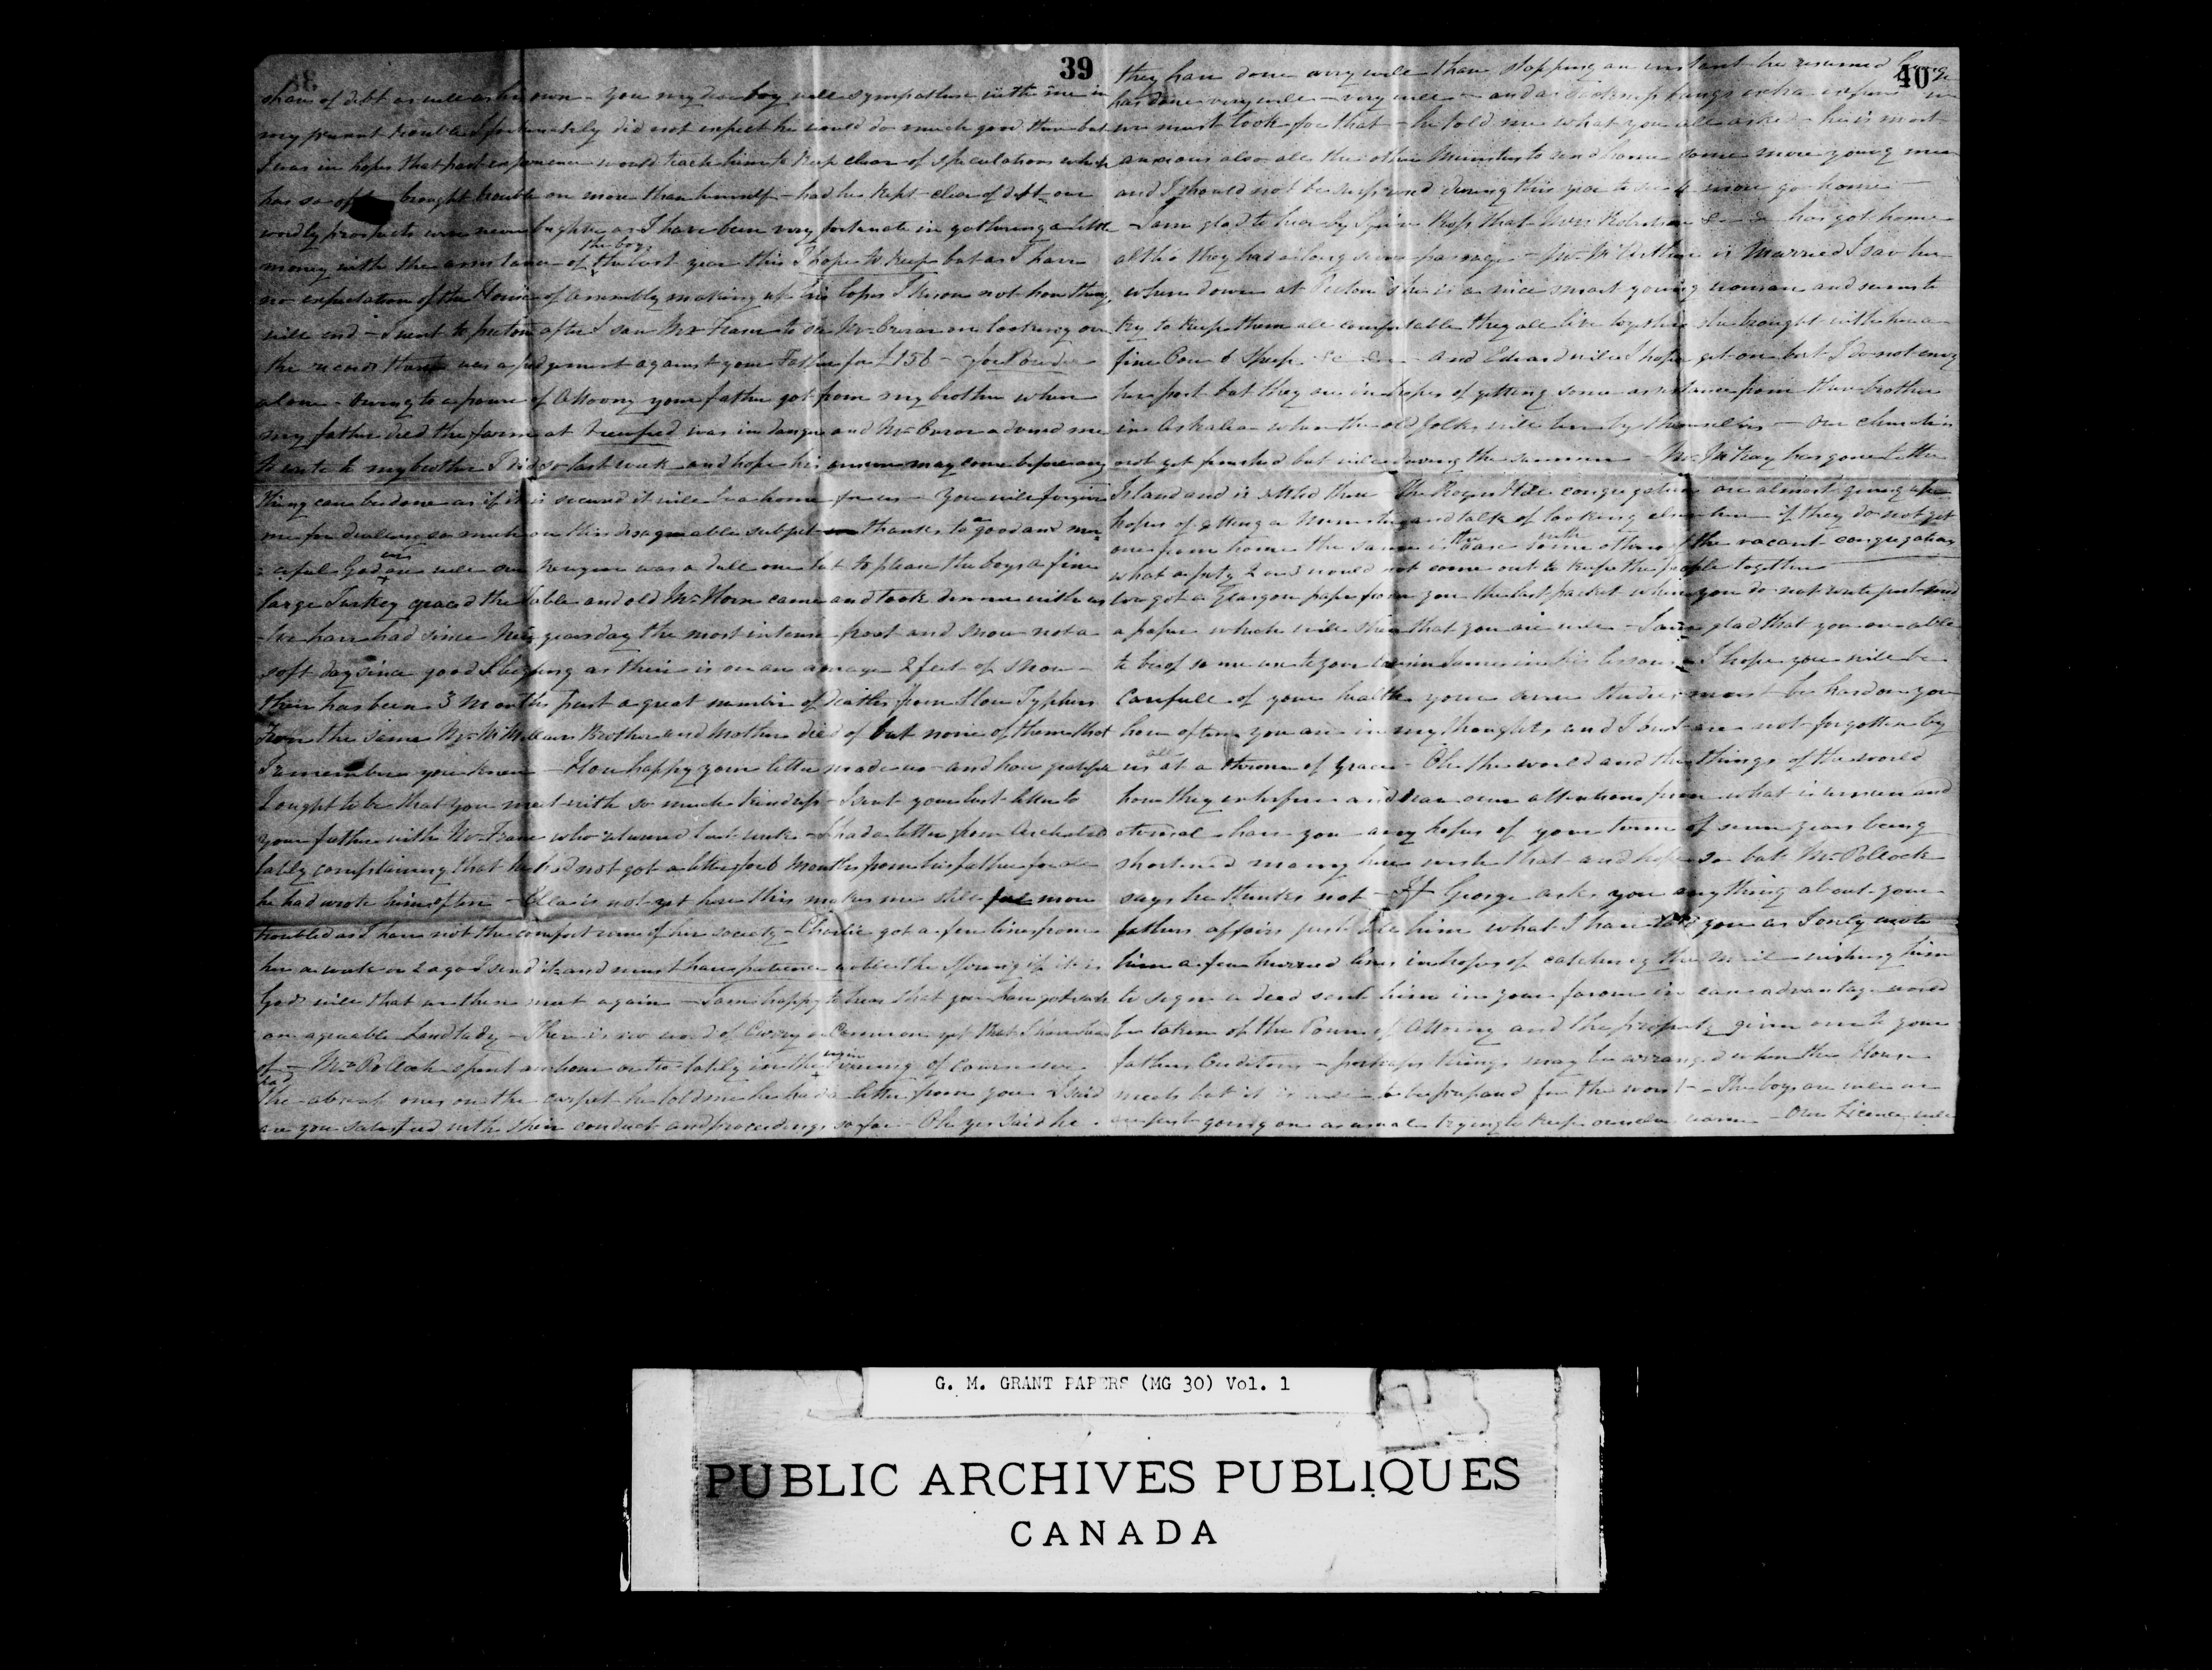 39
share of debt as well as his own - You my dear boy will sympathise with me in
my present trouble I fortunately did not expect he would do much good there but
I was in hopes that past experience would teach him to keep clear of speculations which
has so often brought trouble on more than himself - had he kept clear of debt our
wordly prospects were never brighter as I have been very fortunate in gathering a little
money with the assistance of the boys the last year this I hope to keep but as I have
no expectation of the House of Assembly making up his loss I know not how things
will end - I went to Pictou after I saw Mr to see Mr on looking over
the records there was a judgement against your Father for £156 -
alone - Owing to a power of Attorny your father got from my brother when
my father died the farm at was in danger and Mr advised me
to write to my brother I did so last week and hope his answer may come before any
thing can be done as if it is secured it will be a home for us - You will forgive
me for dwelling so much on this disagreeable subject thanks to a good and mer
ciful God we are well our Newyear was a dull one but to please the boys a fine
large Turkey graced the Table and old Mr Horn came and took dinner with us
- We have had since New years day the most intense frost and snow not a
soft day since good Sleighing as their is on an average 2 feet of snow -
their has been 3 months past a great number of deaths from Slow Typhus
From the same Mr McMillan's Brother and Mother died of but none of them that
I remember you knew - How happy your letter made us - and how grateful
I ought to be that you meet with so much kindness - I sent your last letter to
your father with Mr who returned last week - I had a letter from
lately complaining that he had not got a letter for 6 months from his father for all
he had wrote him often - is not yet here this makes me still more
troubled as I have not the comfort even of her society - Charlie got a few lines from
her a week or 2 ago I send it and must have patience untill the Spring if it is
God's will that we then meet again - I am happy to hear that you have got such
an agreeable Landlady - There is no word of or Cameron yet that I have heard
of - Mr Pollock spent an hour or two lately in the evening of course we
had the absent ones on the carpet he told me he had a letter from you I said
are you satisfied with their conduct and proceedings so far - Oh yes said he
40
they have done very well then stopping an instant he resumed George
has done very well - very well - and as sickness brings extra expense
we must look for that - he told me what you all asked - he is most
anxious also all the other Ministers to send home some more young men
and I should not be surprised during this year to see 4 more go home -
- I am glad to hear by Squire Ross that Robertson &c has got home
altho they had a long passage - Mr McArthur is Married I saw her
when down at Pictou she is a nice smart young woman and seems to
try to keep them all comfortable they all live together she brought with her a
fine Cow 6 Sheep &c &c - and Edward will I hope get on but I do not envy
her post but they are in hopes of getting some assistance from their brother
in when the old folks will live by themselves - Our church is
not yet finished but will during the summer - Mr McKay has gone to the
Island and is settled there The Rogers Hill congregation are almost giving up
hopes of getting a Minister and talk of looking elsewhere if they do not get
one from home the same is the case with some others of the vacant congregations
what a pity 2 or 3 would not come out to keep the people together
We got a Glasgow paper from you the last packet when you do not write just send
a paper which will shew that you are well - I am glad that you are able
to be of some use to your cousin James in his lessons - I hope you will be
Carefull of your health your own studies must be hard on you
how often you are in my thoughts and I trust are not forgotten by
us all at a throne of Grace - Oh the world and the things of the world
how they interfere and draw our attentions from what is unseen and
eternal - have you any hopes of your term of seven years being
shortened many here wish that and hope so but Mr Pollock
says he thinks not - If George asks you anything about your
fathers affairs just tell him what I have told you as I only wrote
him a few hurried lines in hopes of catching the Mail wishing him
to sign a deed sent him in your favour in case advantage would
be taken of the Power of Attorny and the property given over to your
fathers Creditors - perhaps things may be arranged when the House
meets but it is well to be prepared for the worst - The boys are well we
are just going on as usual trying to keep ourselves warm - Our Licence will
G. M. GRANT PAPERS (MG 30) Vol. 1
PUBLIC ARCHIVES PUBLIQUES
CANADA